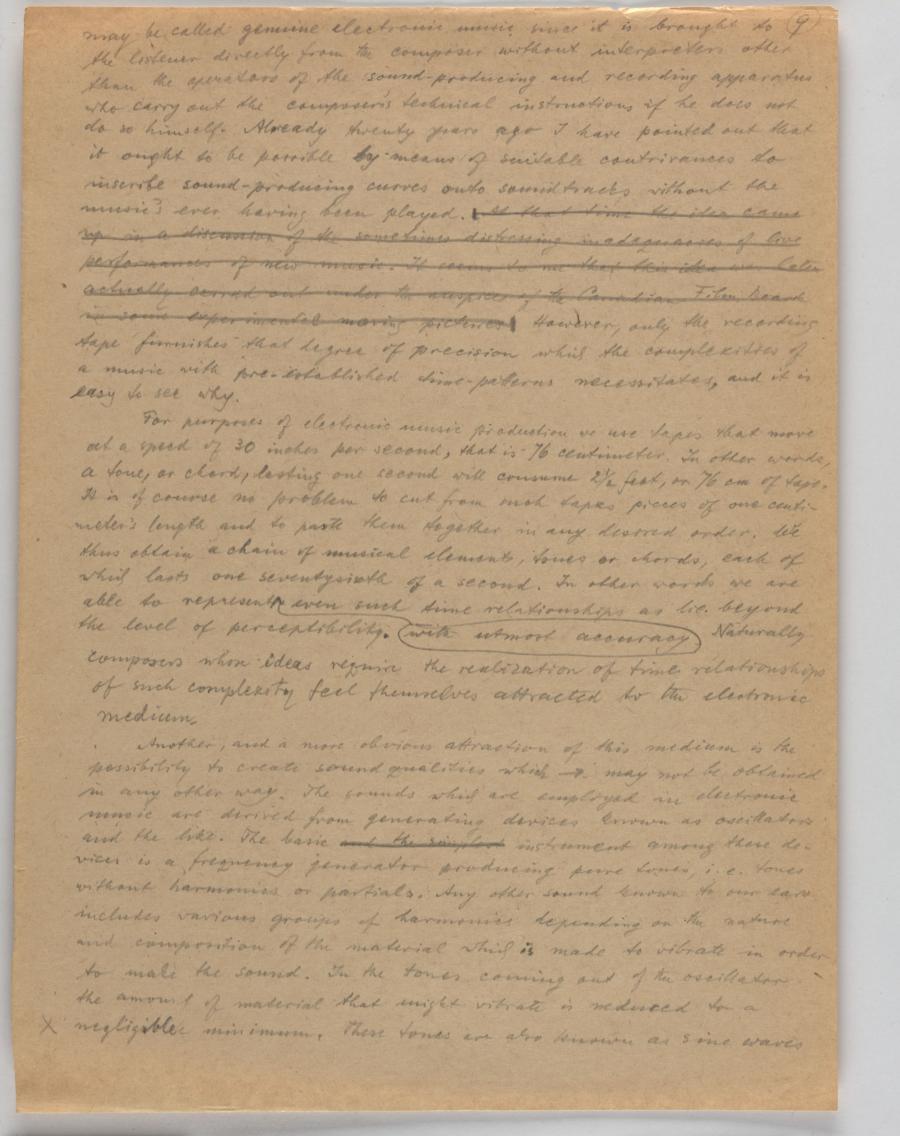 may be called genuine electronic music since it is brought to 9
the listener directly from the composer without interpreters other
than the operators of the sound-producing and recording apparatus
who carry out the composer's technical instructions if he does not
do so himself. Already twenty years ago I have pointed out that
it ought to be possible by means of suitable contrivances to
inscribe sound-producing curves onto soundtracks without the
music's ever having been played. At that time the idea came
up in a discussion of the sometimes distressing inadequacies of live
performances of new music. It seems to me that this idea was later
actually carried out under the auspices of the Canadian Film Board
in some experimental moving pictures. However, only the recording
tape furnishes that degree of precision which the complexities of
a music with pre-established time-patterns necessitates, and it is
easy to see why.
For purposes of electronic music production we use tapes that move
at a speed of 30 inches per second, that is 76 centimeter. In other words,
a tone, or chord, lasting one second will consume 2½ feet, or 76 cm of tape.
It is of course no problem to cut from such tapes pieces of one centi-
meter's length and to paste them together in any desired order. We
thus obtain a chain of musical elements, tones or chords, each of
which lasts one seventysixth of a second. In other words we are
able to represent even such time relationships as lie beyond
the level of perceptibility. with utmost accuracy Naturally
composers whose ideas require the realization of time relationships
of such complexity feel themselves attracted to the electronic
medium.
Another, and a more obvious attraction of this medium is the
possibility to create sound qualities which may not be obtained
in any other way. The sounds which are employed in electronic
music are derived from generating devices known as oscillators
and the like. The basic and the simplest instrument among these de-
vices is a frequency generator producing pure tones, i.e. tones
without harmonics or partials. Any other sound known to our ears
includes various groups of harmonics depending on the nature
and composition of the material which is made to vibrate in order
to make the sound. In the tones coming out of the oscillator
the amount of material that might vibrate is reduced to a
x negligible minimum. These tones are also known as sine waves